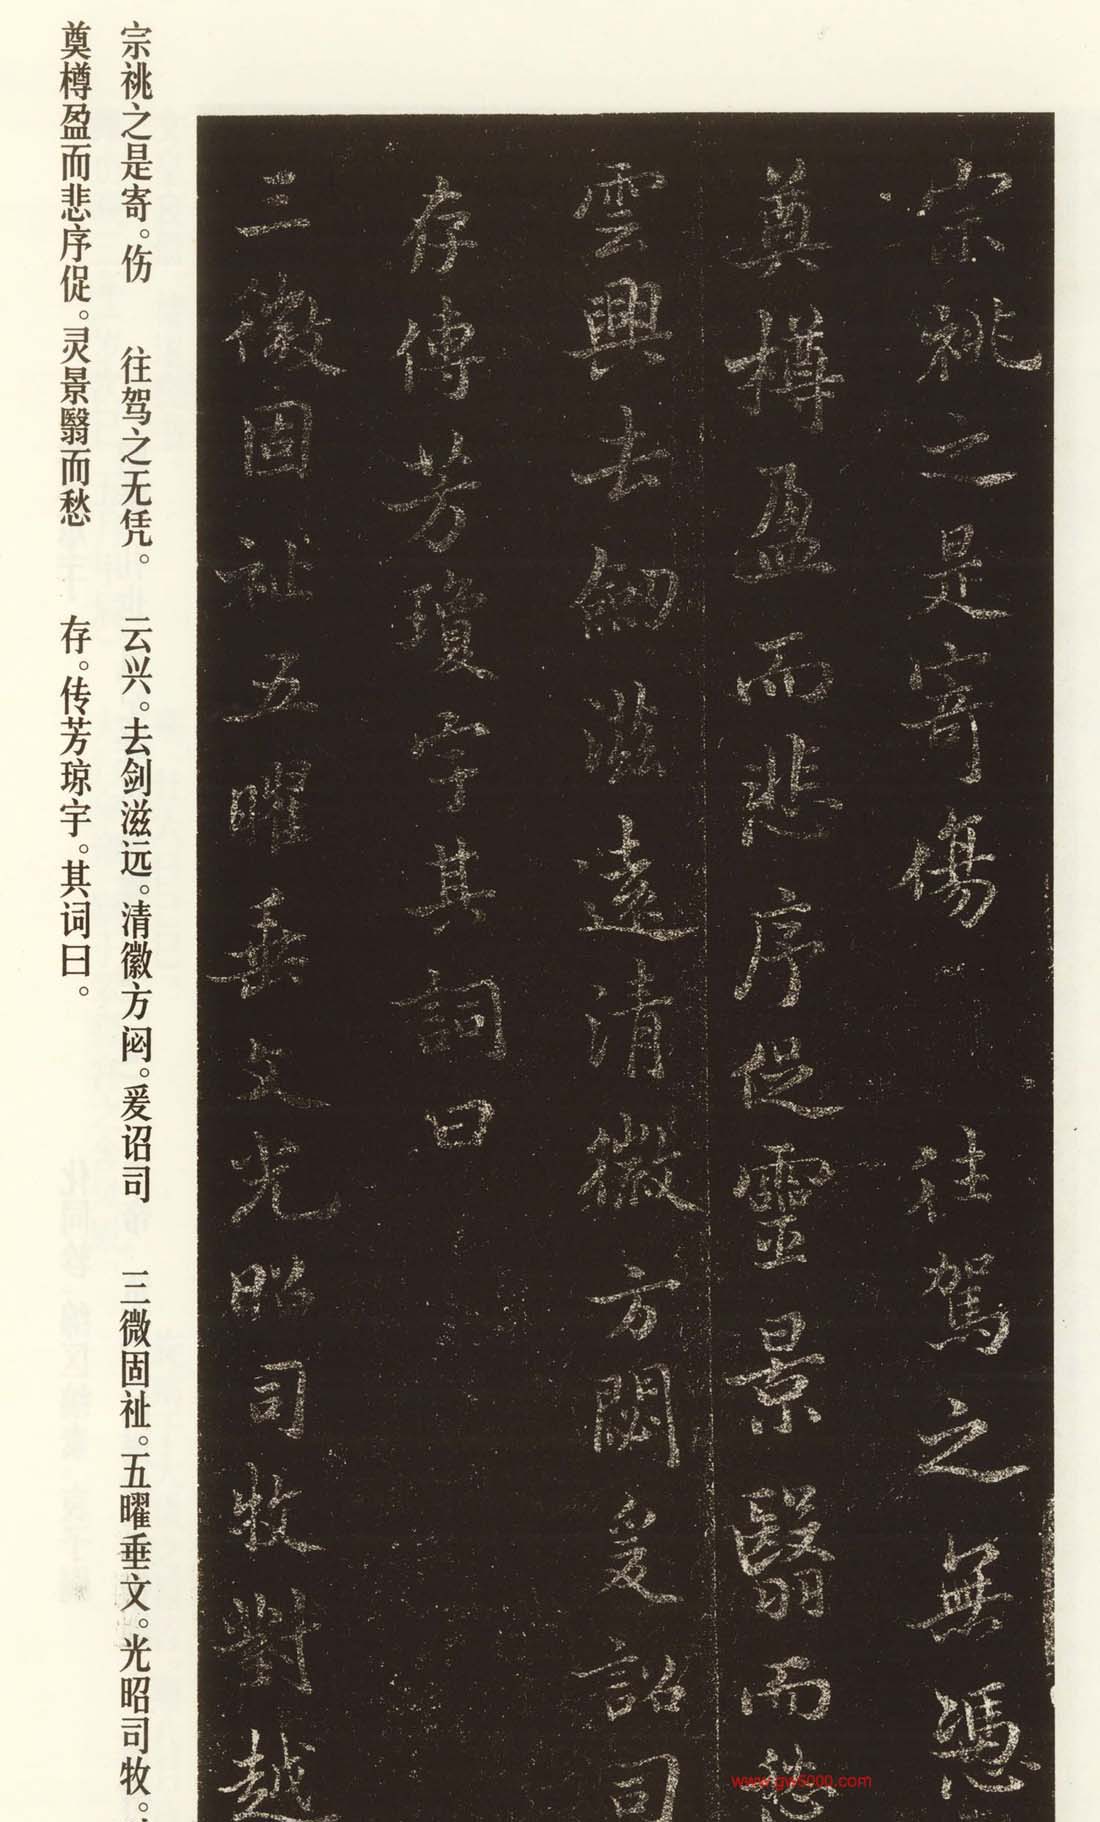 宗祧之是寄傷 往駕之無憑
奠樽盈而悲序促靈景翳而愁
雲興去劒滋遠清徽方閟爰詔司
存傳芳瓊宇其詞曰
三微固祉五曜垂文光昭司牧對越
宗祧之是寄。伤 往驾之无凭。 云兴。去剑滋远。清徽方闷。爰诏司 三微固祉。五曜垂文。光昭司牧。
奠樽盈而悲序促。灵景翳而愁 存。传芳琼宇。其词曰。
www.gw5000.com